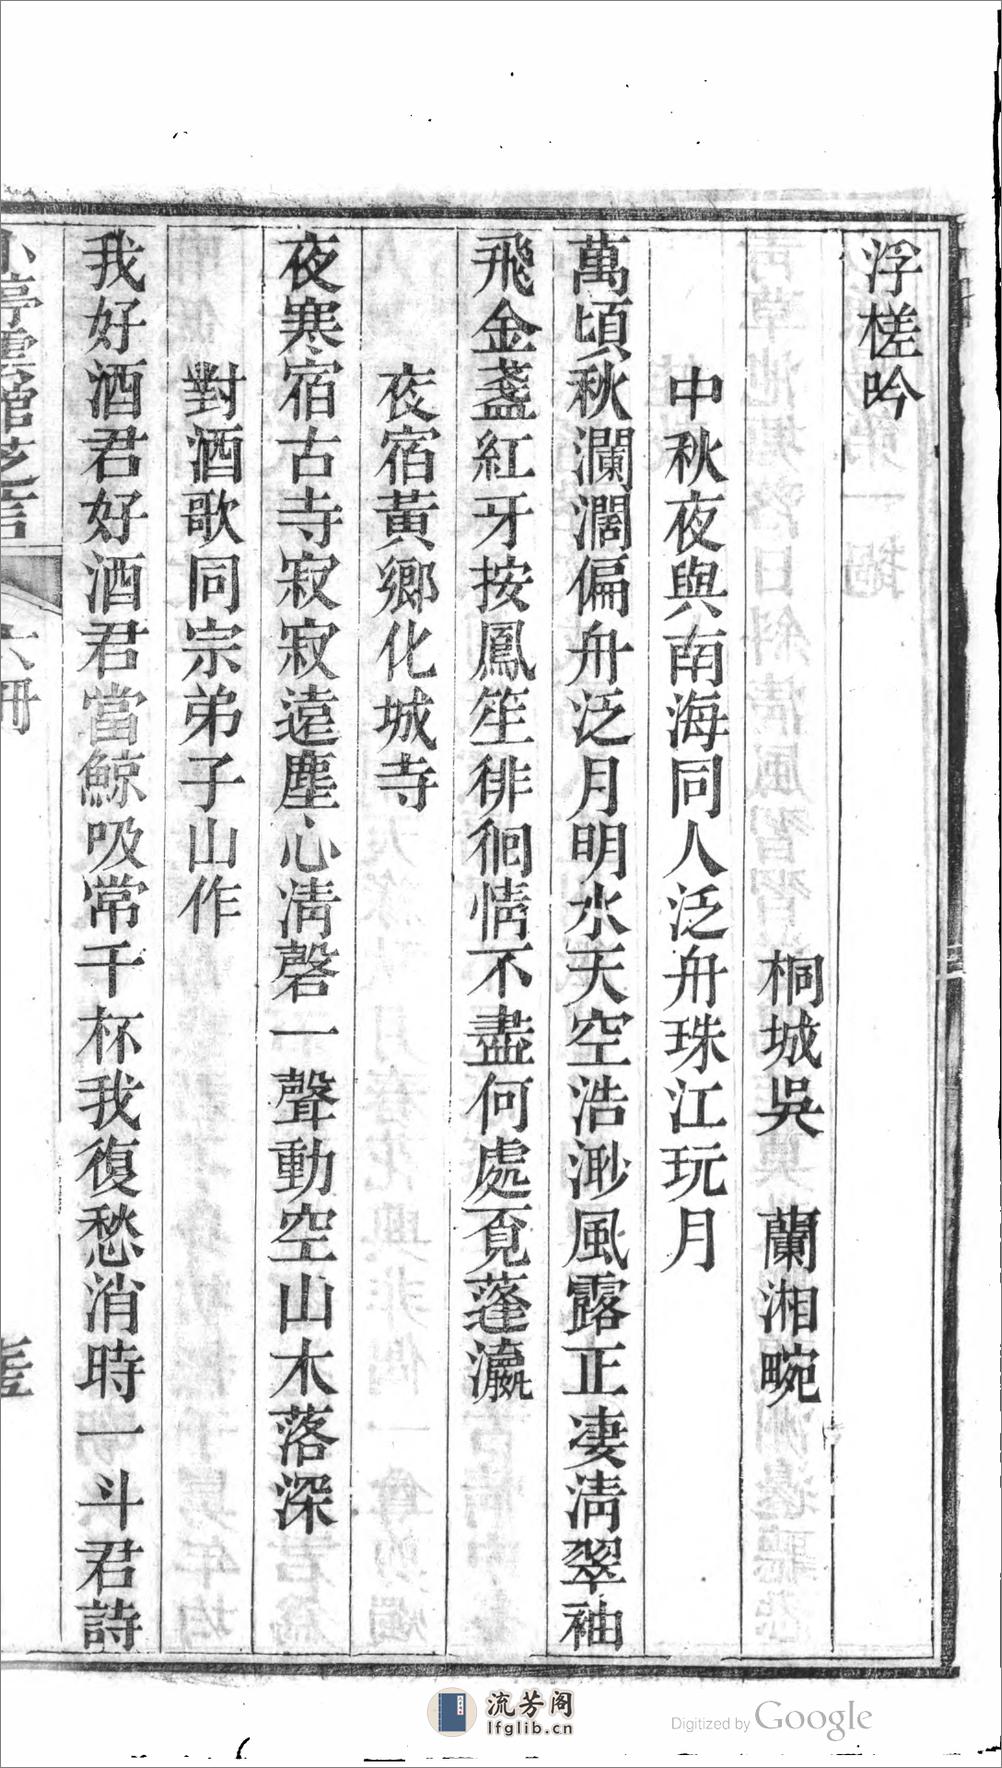 浮槎吟
桐城吳　蘭湘畹
中秋夜與南海同人泛舟珠江玩月
萬頃秋瀾濶偏舟泛月明水天空浩渺風露正凄淸翠袖
飛金盞紅牙按鳳笙徘徊情不盡何處覓蓬瀛
夜宿黃鄉化城寺
夜寒宿古寺寂寂遠塵心淸磬一聲動空山木落深
對酒歌同宗弟子山作
我好酒君好酒君當鯨吸常千杯我復愁消時一斗君詩
亭雲館芝言
六冊
流芳阁
lfglib.cn
Digitized by Google